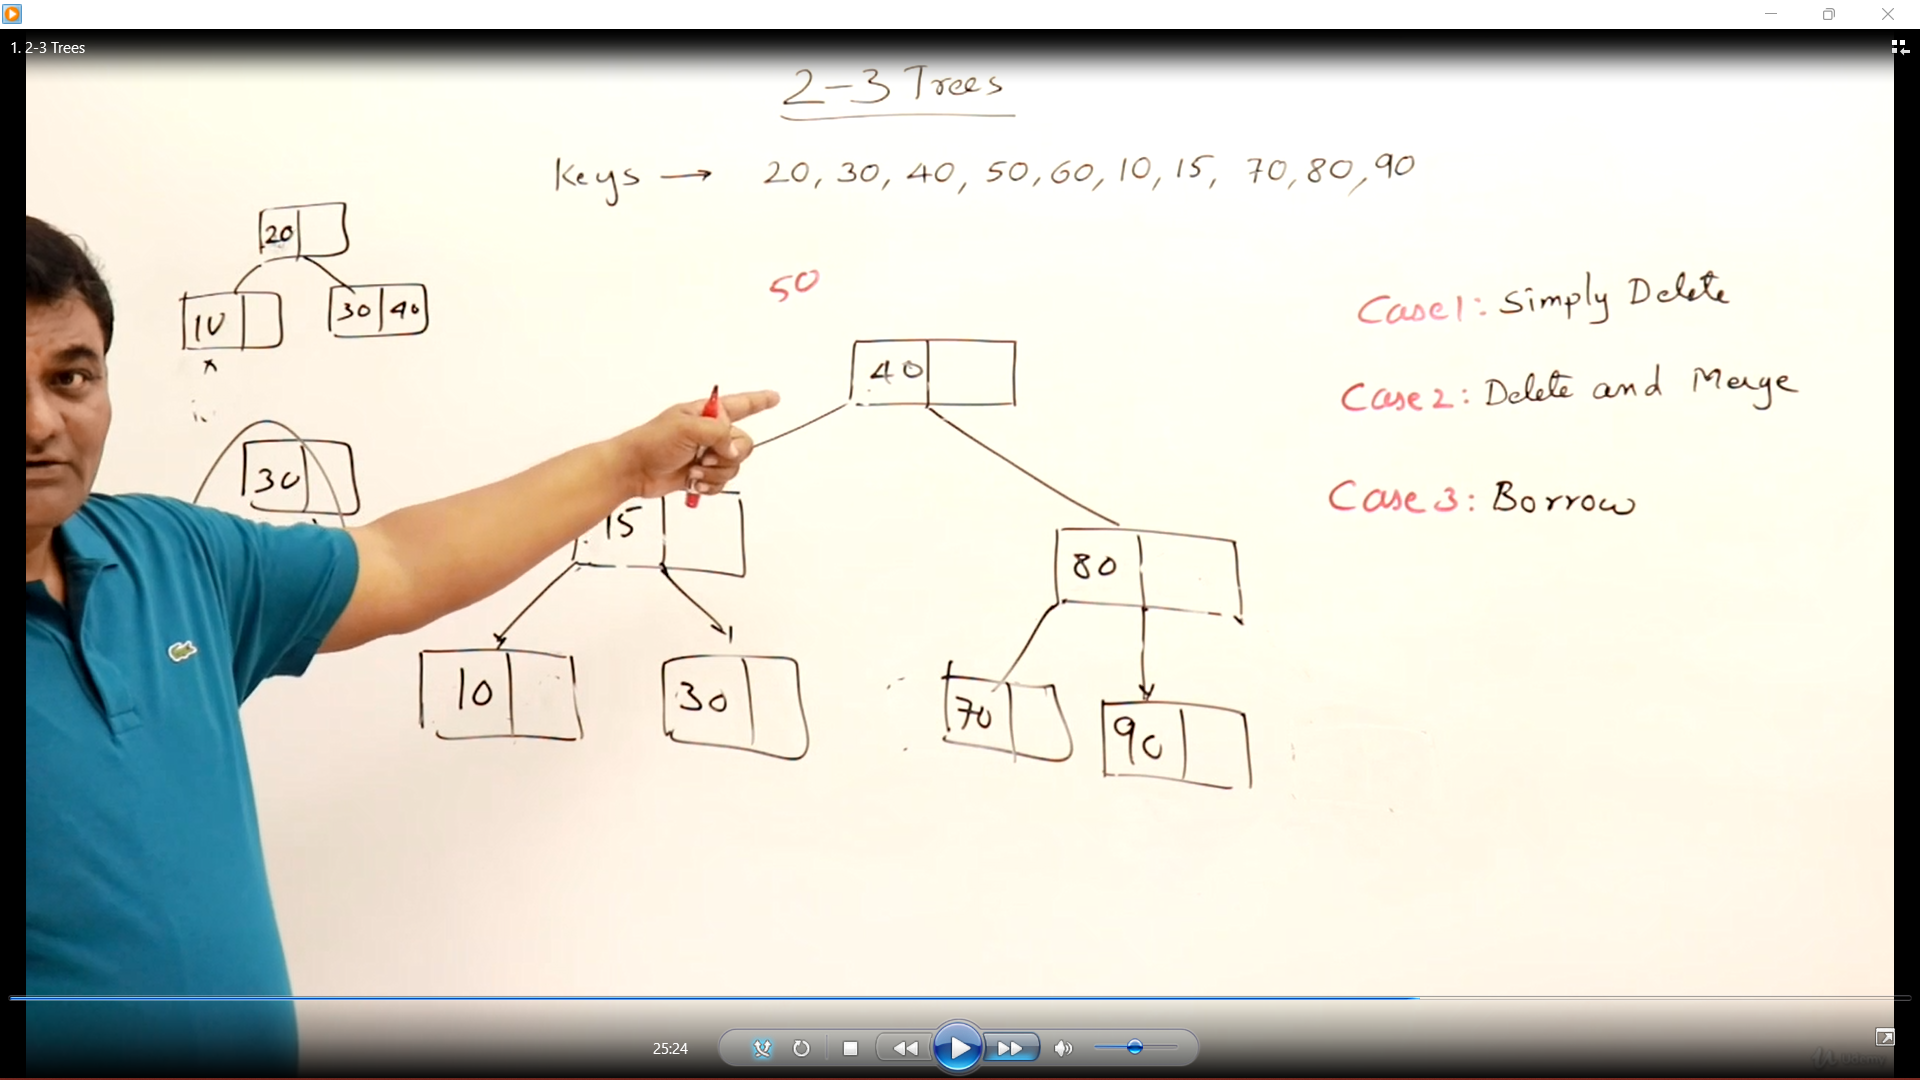 1. 2-3 Trees
2-3 Trees
Keys → 20, 30, 40, 50, 60, 10, 15, 70, 80, 90
20
10
30 40
30
50
40
15
80
10
30
70
90
Case1: Simply Delete
Case 2: Delete and Merge
Case 3: Borrow
25:24
Udemy